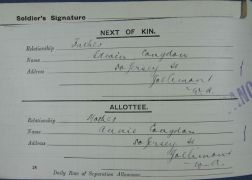 Soldier's Signature
NEXT OF KIN.
Relationship Father
Name Edwin Congdon
Address 50 Jersey St
Jollimont
W.A.
ALLOTTEE.
Relationship Mother
Name Annie Congdon
Address 50 Jersey St
Jollimont
W.A.
Daily Rate of Separation Allowance